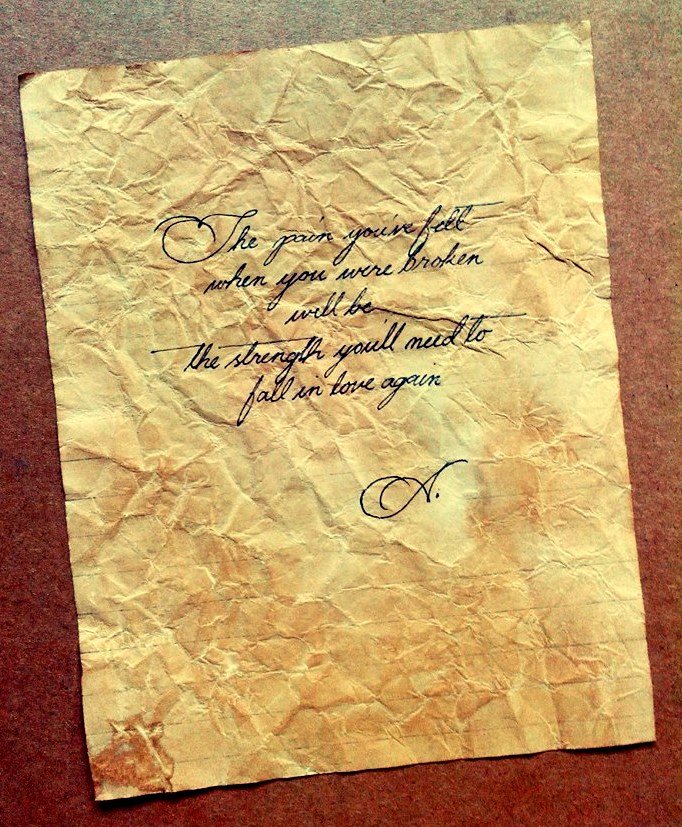 The pain you've felt
when you were broken
will be
the strength you'll need to
fall in love again
A.